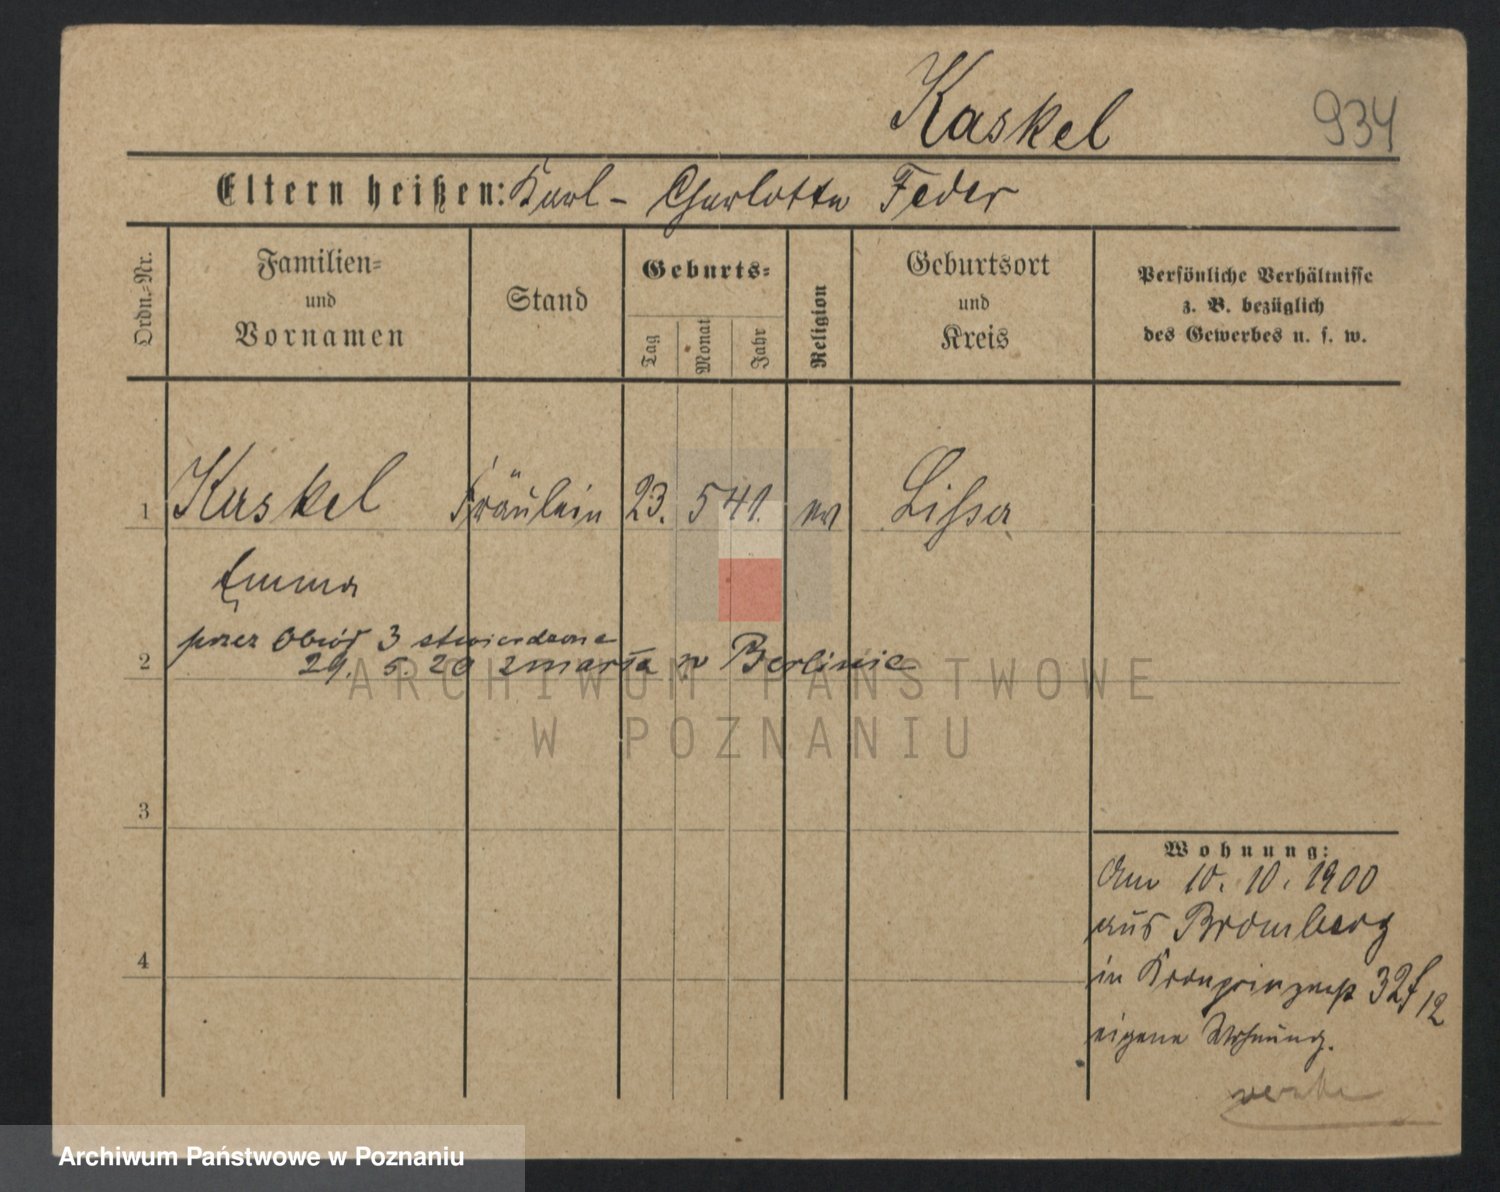 Kaskel 934
Eltern heißen: Karl - Charlotte Feder
Ordn.-Nr.
Familien=
und
Vornamen
Stand
Geburts=
Tag
Monat
Jahr
Religion
Geburtsort
und
Kreis
Persönliche Verhältnisse
z. B. bezüglich
des Gewerbes u. s. w.
1 Kaskel Fräulein 23. 5 41. ev Lissa
Emma
przez Obwód 3 stwierdzone
2 29. 5. 20 zmarła w Berlinie
ARCHIWUM PAŃSTWOWE
W POZNANIU
3
Wohnung:
Am 10. 10. 1900
aus Bromberg
4
in Kronprinzenst 32
12
eigene Wohnung.
Archiwum Państwowe w Poznaniu